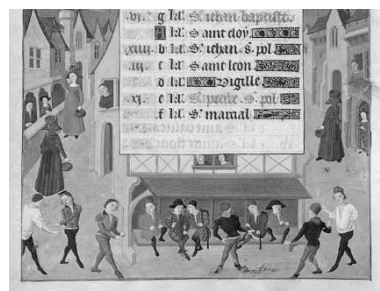 vi. g kl'. S' iehan baptiste.
A kl'. Saint eloy.
xiiii b kl'. S' iehan. s. pol
iii. c kl'. Saint leon
d kl'. Vigille
xi. e kl'. S' pierre. S. pol
f kl'. S' marcial